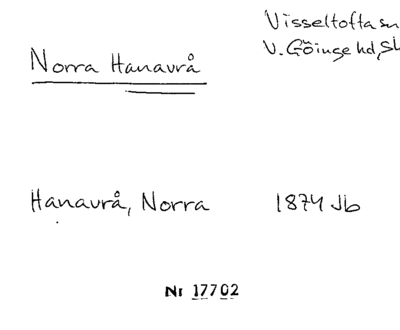 Norra Hanavrå
Visseltofta sn
V. Göinge hd, Sk
Hanavrå, Norra
1874 Jb
Nr 17702